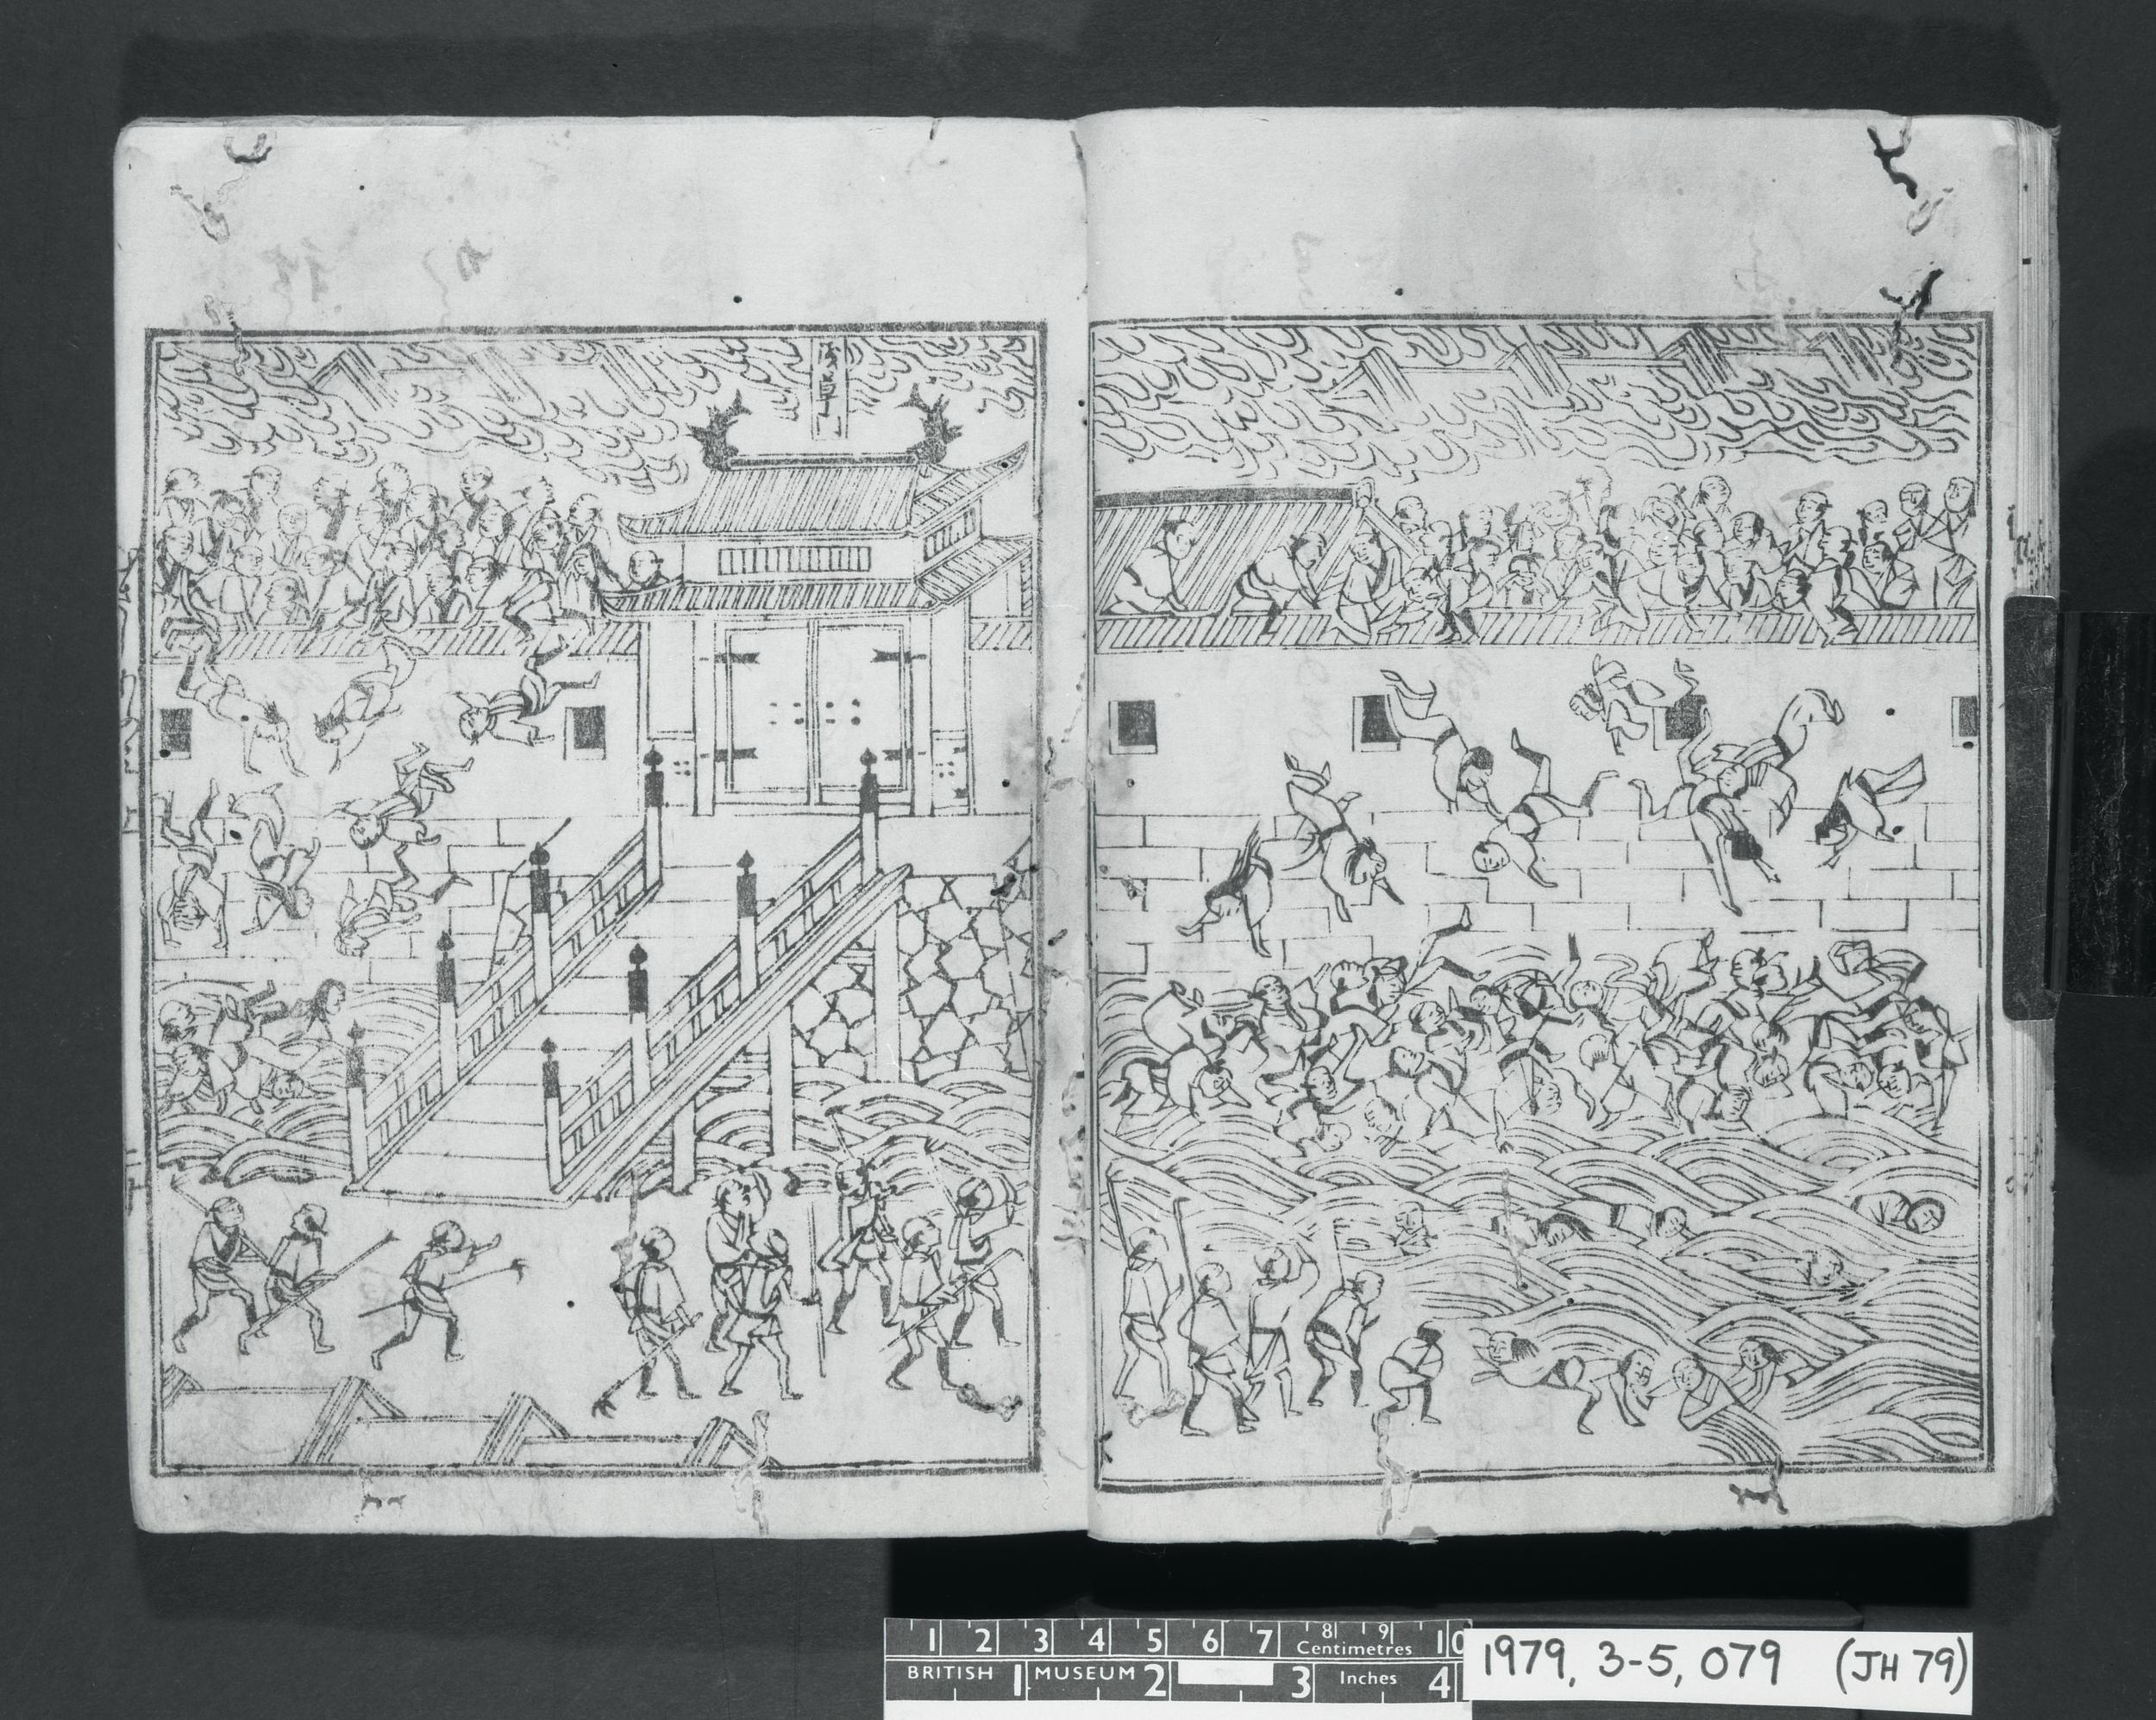 浅草
1 2 3 4 5 6 7 8 9 10
Centimetres
BRITISH MUSEUM
1 2 3 4
Inches
1979, 3-5, 079 (JH 79)